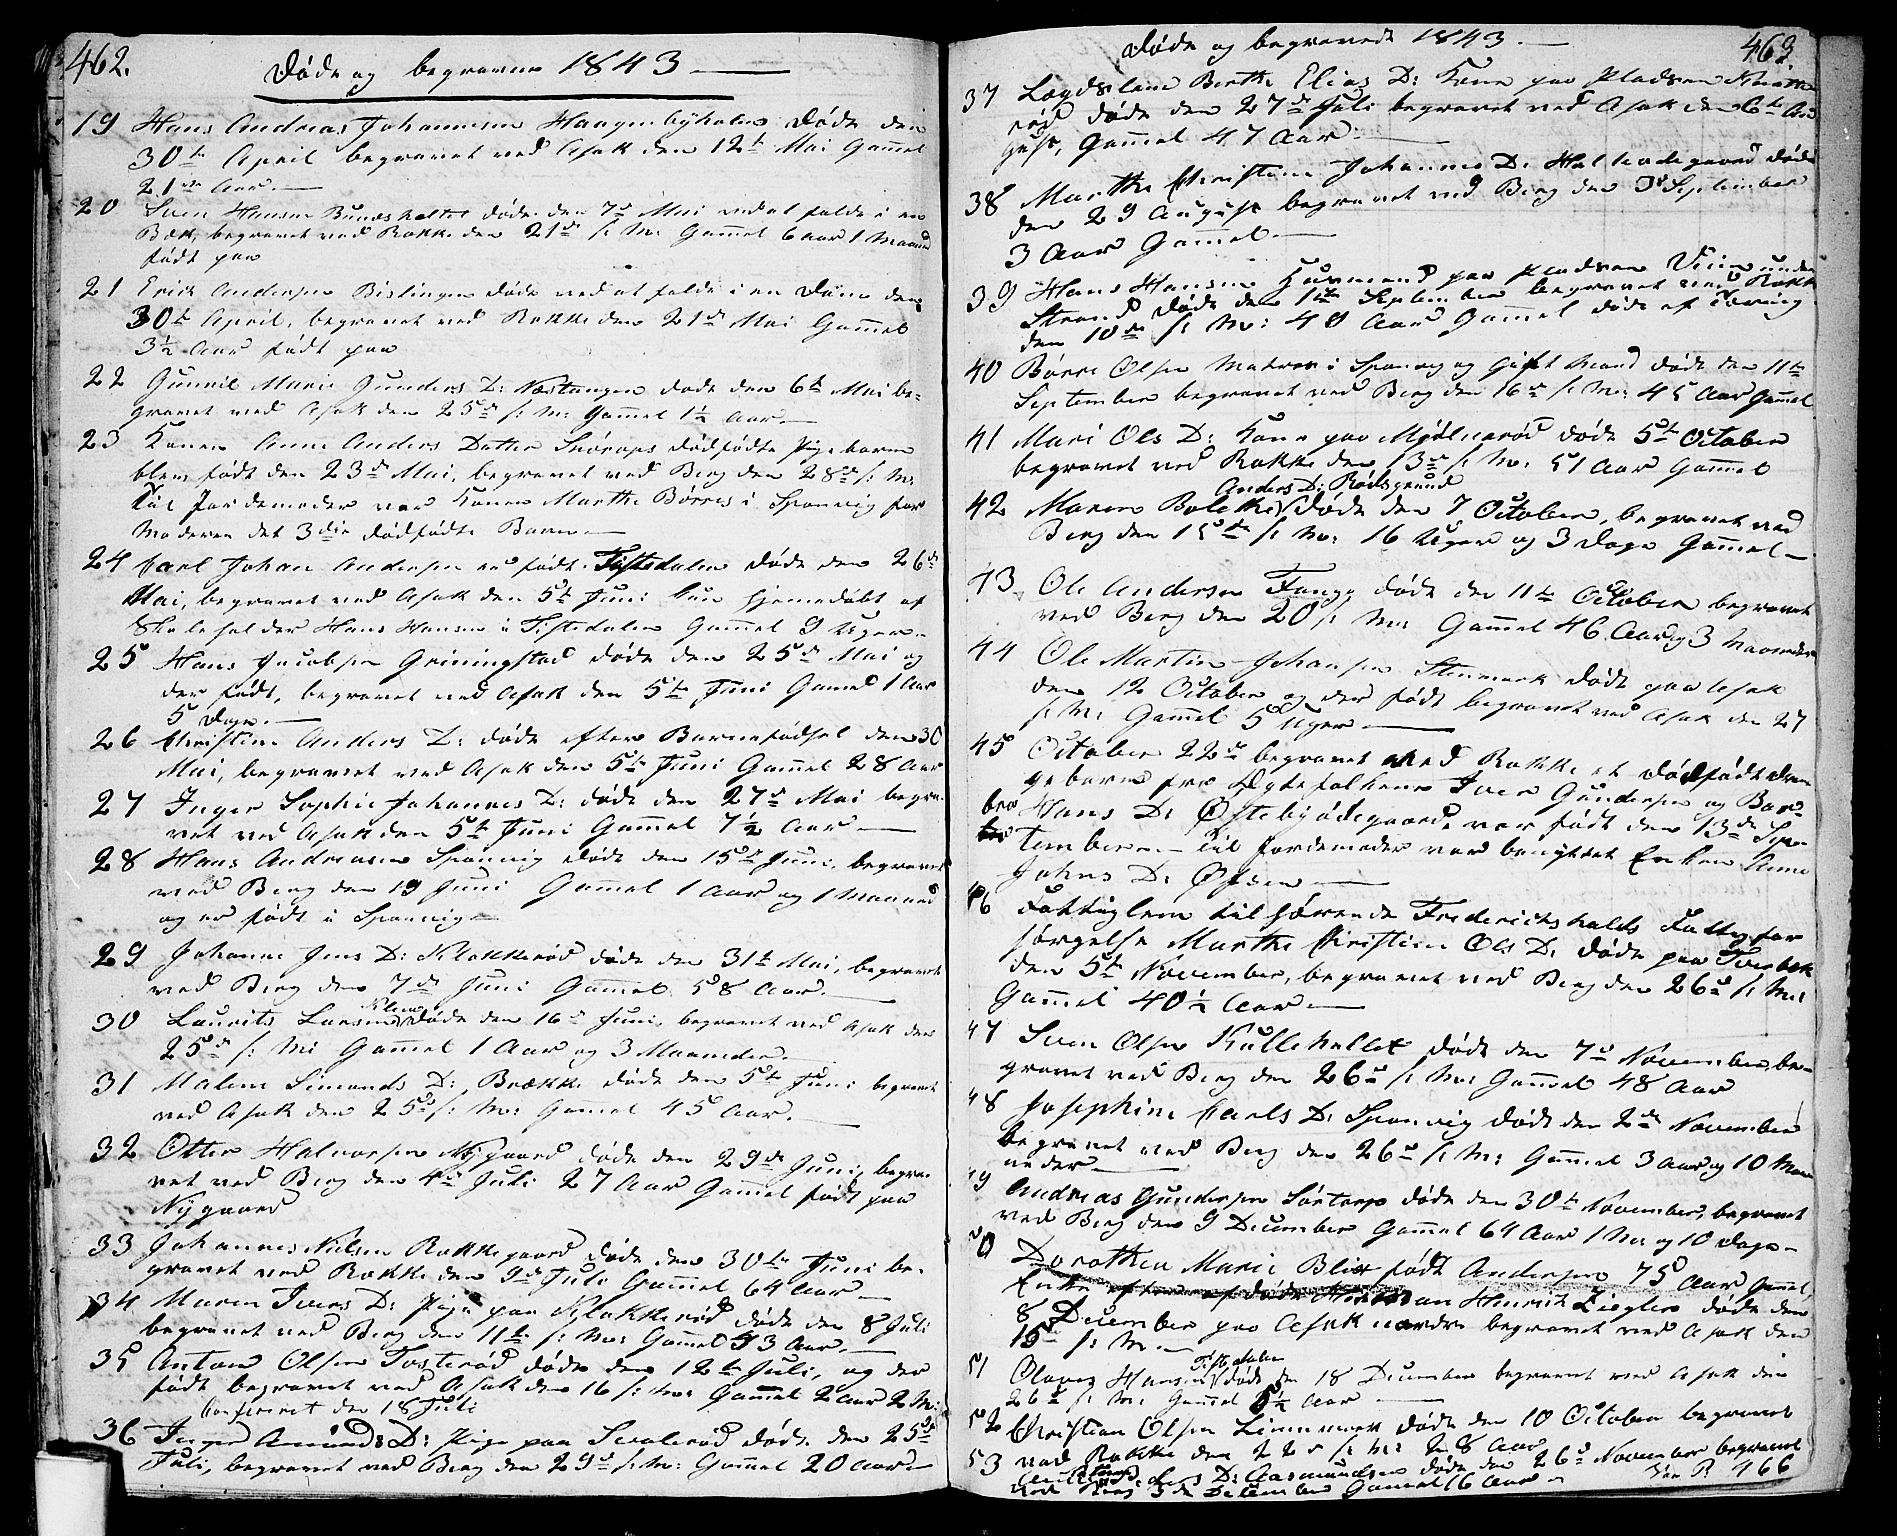 462.
Døde og begravne 1843
19 Hans Andreas Johannesen Haagenbyholen døde den
30te April begravet ved Asak den 12te Mai Gammel
21de Aar.
20 Sven Hansen Bundsholtet døde den 7de Mai ved at falde i en
Bæk, begravet ved Rokke den 21de s: M: Gammel 6 aar 1 Maaned
født paa
21 Erick Andersen Bislingen døde ved at falde i en Dam den
30te April, begravet ved Rokke den 21de Mai Gammel
3½ Aar født paa
22 Gunnil Marie Gunders D: Næstangen døde den 6te Mai be-
gravet ved Asak den 25de s: M: Gammel 1½ Aar.
23 Konen Anne Anders Datter Sørops dødfødte Pigebarn
blev født den 23de Mai, begravet ved Berg den 28de s: M:
Til Jordemoder var Konen Marthe Børres i Sponvig for
Moderen det 3die dødfødte Barn
24 Carl Johan Andersen født Tistedalen døde den 26de
Mai, begravet ved Asak den 5te Juni kun hjemedøbt af
Skoleholder Hans Hansen i Tistedalen Gammel 9 Uger.
25 Hans Jacobsen Griningstad døde den 25de Mai og
der født, begravet ved Asak den 5te Juni Gamel 1 Aar
5 Dage.
26 Christine Anders D: døde efter Barnefødsel den 30
Mai, begravet ved Asak den 5te Juni Gammel 28 Aar
27 Inger Sophie Johannes D: døde den 27de Mai begra-
vet ved Asak den 5te Juni Gammel 7½ Aar
28 Hans Andreasen Sponvig døde den 15de Juni, begravet
ved Berg den 19 Juni Gammel 1 Aar og 1 Maaned
og er født i Sponvig
29 Johanne Jens D: Klokkerød døde den 31te Mai, begravet
ved Berg den 7de Juni Gammel 58 Aar.
30 Laurits Larsen døde den 16de Juni begravet ved Asak den
25de s: M: Gammel 1 Aar og 3 Maaneder.
31 Malene Simonds D: Brække døde den 5te Juni begravet
ved Asak den 25de s: M: Gammel 45 Aar.
32 Otter Halvorsen Nygaard døde den 29de Juni, begra-
vet ved Berg den 4de Juli 27 Aar Gammel født paa
Nygaard
33 Johannes Nilsen Rokkegaard døde den 30te Juni be-
gravet ved Rokke den 9de Juli Gammel 64 Aar
34 Maren Ivers D: Pige paa Klokkerød døde den 8 Juli
begravet ved Berg den 11te s: M: Gammel 53 Aar.
35 Anton Olsen Tosterød døde den 12te Juli, og der
født begravet ved Asak den 16 s: M: Gammel 2 aar 2 M:
den 18 Juli
36 Inger Amunds D: Pige paa døde den 25de
Juli, begravet ved Berg den 29de s: M: Gammel 20 Aar
Døde og begravede 1843.
463.
37 Lægdslem Berthe Elias D: Kone paa Pladsen
rød døde den 27de Juli begravet ved Asak den 6te Au
gust, Gammel 47 Aar
38 Marthe Christine Johannes D: døde
den 29 August begravet ved Berg den 3de September
3 Aar Gammel.
39 Hans Hansen Huusmand paa Pladsen Veien under
Strand døde den 1te September begravet ved Rokke
den 10de s: M: 48 Aar Gammel døde af Tæring
40 Børre Olsen Matros i Sponvig og Gift Mand døde den 11te
September begravet ved Berg den 16de s: M: 45 Aar Gamel
41 Mari Ols D: Kone paa Mjølnerød døde 5te October
begravet ved Rokke den 13de s: M: 51 Aar Gammel
Anders D: Rødsgrund
42 Maren Bolethe døde den 7 October, begravet ved
Berg den 15de s: M: 16 Uger og 3 Dage Gammel
43 Ole Andersen Fange døde den 11te October begravet
ved Berg den 20 s: M: Gammel 46 Aar og 3 Maaneder
44 Ole Martin Johansen Stenmark døde paa Asak
den 12 October og der født begravet ved Asak den 27
s: M: Gammel 5 Uger
45 October 22de begravet ved Rokke et dødfødt dren
gebarn fra Ægtefolkene Iver Gundersen og Bar-
bra Hans D: Østebyødegaard, var født den 13de Sep-
temberen Til Jordemoder var benyttet Enken Anne
Johns D: Ofsen
46 Fattiglem tilhørende Frederichshalds Fattigfor
sørgelse Marthe Christine Ols D: døde paa Torsbek
den 5te November, begravet ved Berg den 26de s: M:
Gammel 40½ Aar
47 Sven Olsen Kullehullet døde den 7de November, be-
gravet ved Berg den 26de s: M: Gammel 48 Aar
48 Josephine Carls D: Sponvig døde den 2de November
begravet ved Berg den 26de s: M: Gammel 3 Aar og 10 Maa
neder
49 Andreas Gundersen Sørtorp døde den 30te November, begravet
ved Berg den 9 December Gammel 64 Aar 1 M: og 10 Dage
50 Dorothea Marie Blix født Andersen 75 Aar Gamel,
Enke efter afdøde Herman Henrick Ziegler døde den
8 December paa Asak nordre begravet ved Asak den
15de s: M:
Tistedalen
51 Olaves Hansen døde den 18 December begravet ved Asak den
26de s: M: Gammel 5½ Aar
52 Christian Olsen Limmerk døde den 10 October begravet
53 ved Rokke den 22de s: M: 28 Aar
D: Aasmundsen døde den 26de November begravet
ved Berg 3de December Gammel 16 Aar
466